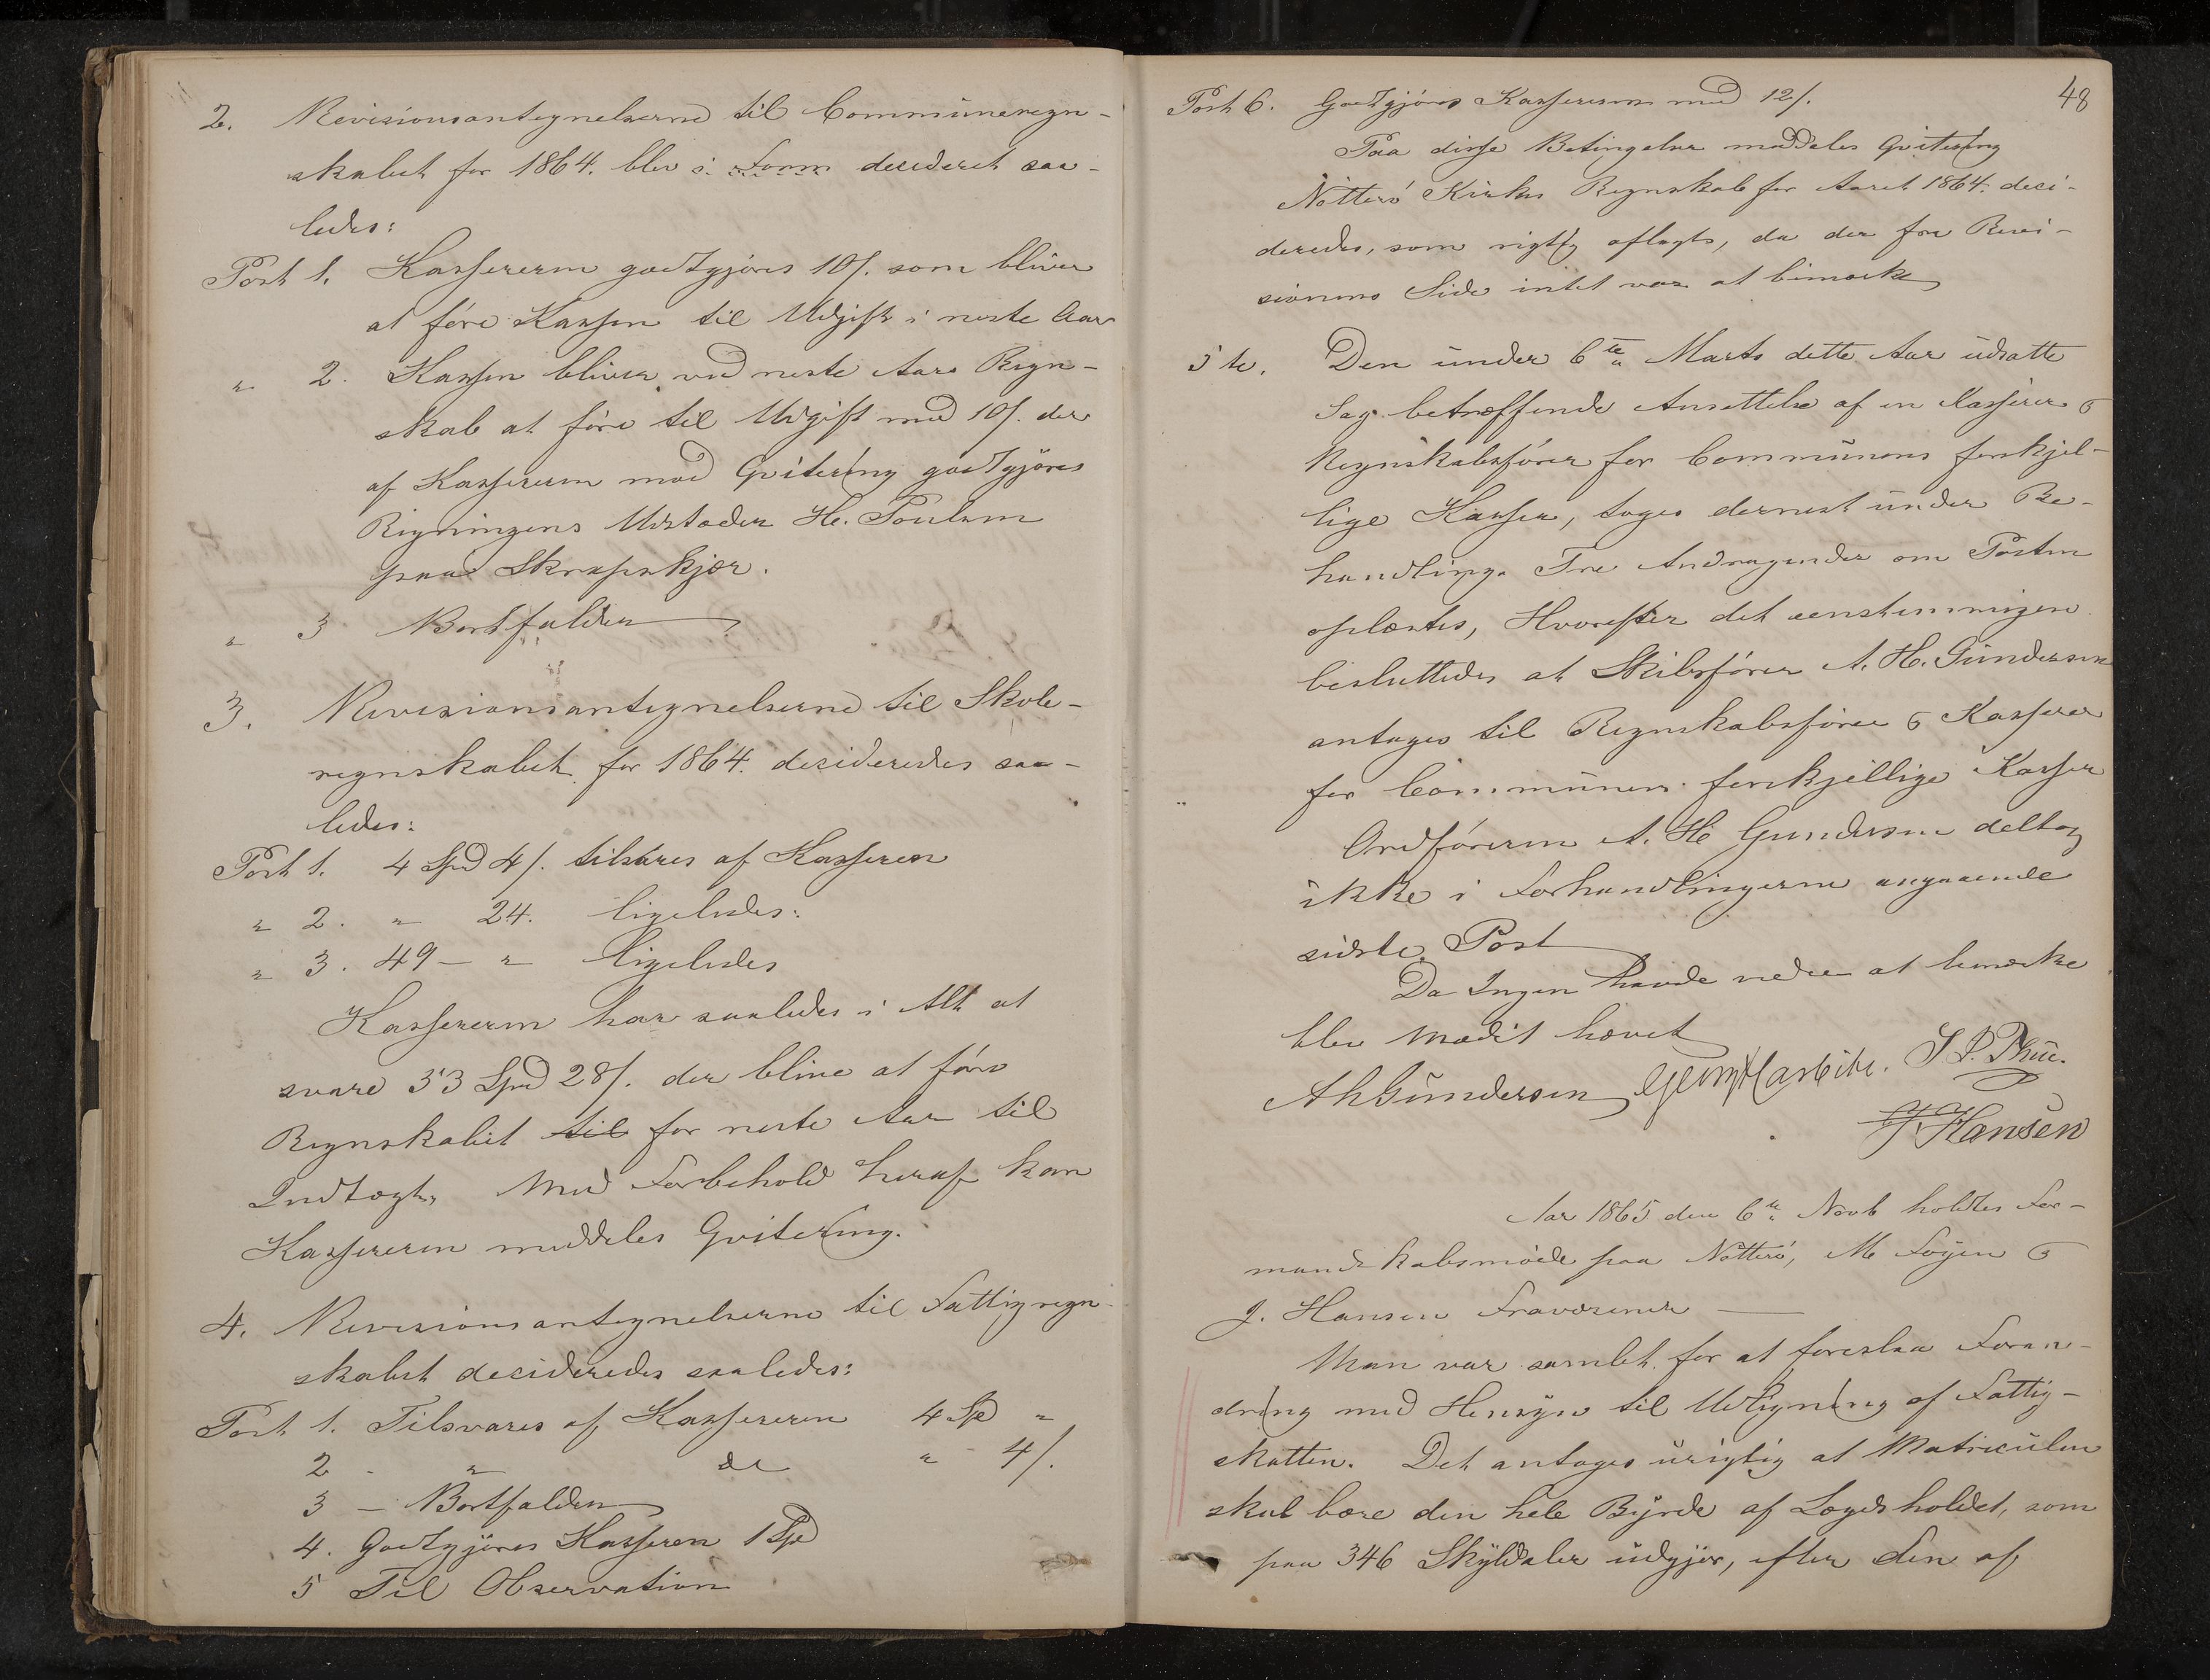 2. Revisionsantegnelserne til Communeregn-
skabet for 1864. blev i Form decideret saa-
ledes:
Post 1. Kassereren godtgjöres 10/. som bliver
at före Kassen til Udgift i neste Aar
" 2. Kassen bliver ved neste Aars Regn-
skab at före til Udgift med 10/. der
af Kassereren mod Qvitering godtgjöres
Regningens Udsteder H. Poulsen
paa Skrapeskjær.
" 3 Bortfalder
3. Revisionsantegnelserne til Skole-
regnskabet for 1864. desideredes saa-
ledes:
Post 1. 4 Spd 4/. tilsvares af Kasseren
" 2. " 24. ligeledes:
" 3. 49 — " ligeledes
Kassereren har saaledes i Alt at
svare 53 Spd 28/. der blive at före
Regnskabet til for neste Aar til
Indtægt, Med Forbehold heraf kan
Kassereren meddeles Qvitering.
4. Revisionsantegnelserne til Fattigregn-
skabet desideredes saaledes:
Post 1. Tilsvares af Kassereren 4 Sp "
2 - " do " 4/.
3 — Bortfalder
4. Godtgjöres Kasseren 1 Spd
5 Til Observation
48
Post 6. Godtgjöres Kassereren med 12/.
Paa disse Betingelser meddeles Qvitering
Nötterö Kirkes Regnskab for Aaret 1864. desi-
deredes, som rigtig aflagts, da der fra Revi-
sionens Side intet var at bemærke
5 te. Den under 6te Marts dette Aar udsatte
Sag betræffende Ansettelse af en Kasserer &
Regnskabsförer for Communens forskjel-
lige Kasser, toges dernest under Be-
handling. Tre Andragender om Posten
oplæstes, Hvorefter det eenstemmigen
besluttedes at Skibsförer A. H. Gundersen
antoges til Regnskabsförer & Kasserer
for Communens forskjellige Kasser
Ordföreren A. H. Gundersen deltog
ikke i Forhandlingerne angaaende
sidste Post
Da Ingen havde videre at bemærke
blev Mödet hævet
A H Gundersen
J. Hansen
Aar 1865 den 6te Novb holdtes For-
mandskabsmöde paa Nötterö, M Föyen &
J. Hansen Fraværende —
Man var samlet for at foreslaa Foran-
dring med Hensyn til Udligning af Fattig-
skatten. Det antoges urigtig at Matriculen
skal bære den hele Byrde af Lægdsholdet, som
paa 346 Skylddaler udgjör, efter den af